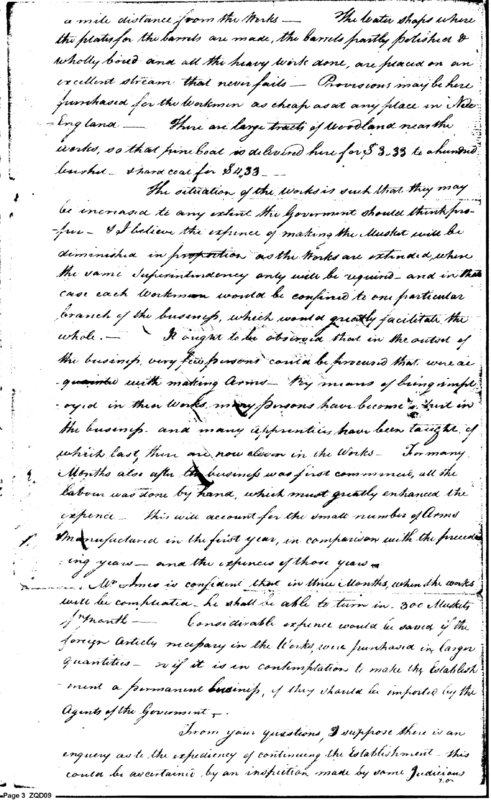 a mile distance from the Works — The Water shops where
the plates for the barrels are made, the barrels partly polished &
wholly bored and all the heavy work done, are placed on an
excellent stream that never fails — Provisions may be here
purchased for the Workmen as cheap as at any place in New
England — There are large tracts of Woodland near the
works, so that pine Coal is delivered here for $3-33 te a hundred
bushel — & hard coal for $4,33 —
The situation of the Works is such that they may
be increased to any extent the Goverment should think pro-
-per — & I believe the expence of making the Musket will be
diminished in proportion as the Works are extended, where
the same Superintendency only will be required — and in that
case each Workman would be confined to one particular
branch of the business, which would greatly facilitate the
whole. — It ought to be observed that in the outset of
the business, very few persons could be procured that were ac
quainted with making Arms — By means of being impl-
-oyed in these Works, many persons have become in
the business and many apprentices have been taught, of
which last, there are now eleven in the Works — For many
Months also after the business was first commenced, all the
labour was done by hand, which must greatly enhanced the
expence — this will account for the small number of Arms
Manufactured in the first year, in comparison with the preceed
-ing years — and the expences of those years —
Mr Ames is confident that in three Months, when the works
will be compleated he shall be able to turn in 300 Muskets
pr month — Considerable expence would be saved if the
foreign Articles necessary in the Works, were purchased in larger
quantities — or if it is in contemplation to make the Establish
ment a permanent business, if they should be imported by the
Agents of the Goverment.
From your questions, I suppose there is an
enquery as to the expediency of continuing the Establishment — this
could be ascertained by an inspection made by some Judicious
Page 3 ZQD09